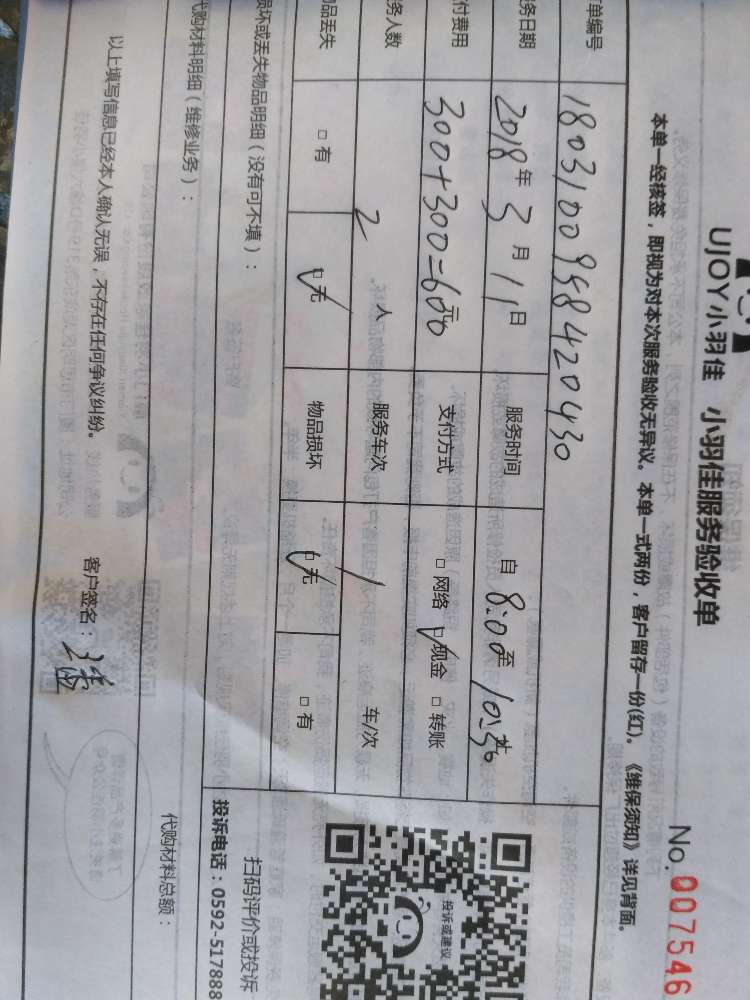 UJOY小羽佳 小羽佳服务验收单
No. 007546
本单一经核签，即视为对本次服务验收无异议。本单一式两份，客户留存一份(红)。《维保须知》详见背面。
单编号 18031009958420430
务日期 2018年3月11日 服务时间 自8:00至10:30
付费用 300+300=600元 支付方式 □网络 ☑现金 □转账
务人数 2人 服务车次 1 车/次
品丢失 □有 ☑无 物品损坏 ☑无 □有
损坏或丢失物品明细（没有可不填）：
代购材料明细（维修业务）：
代购材料总额：
以上填写信息已经本人确认无误，不存在任何争议纠纷。
客户签名：
投诉或建议
扫码评价或投诉
投诉电话：0592-517888